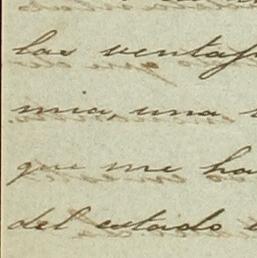 las ventaj
mia, una
que me ha
del estado